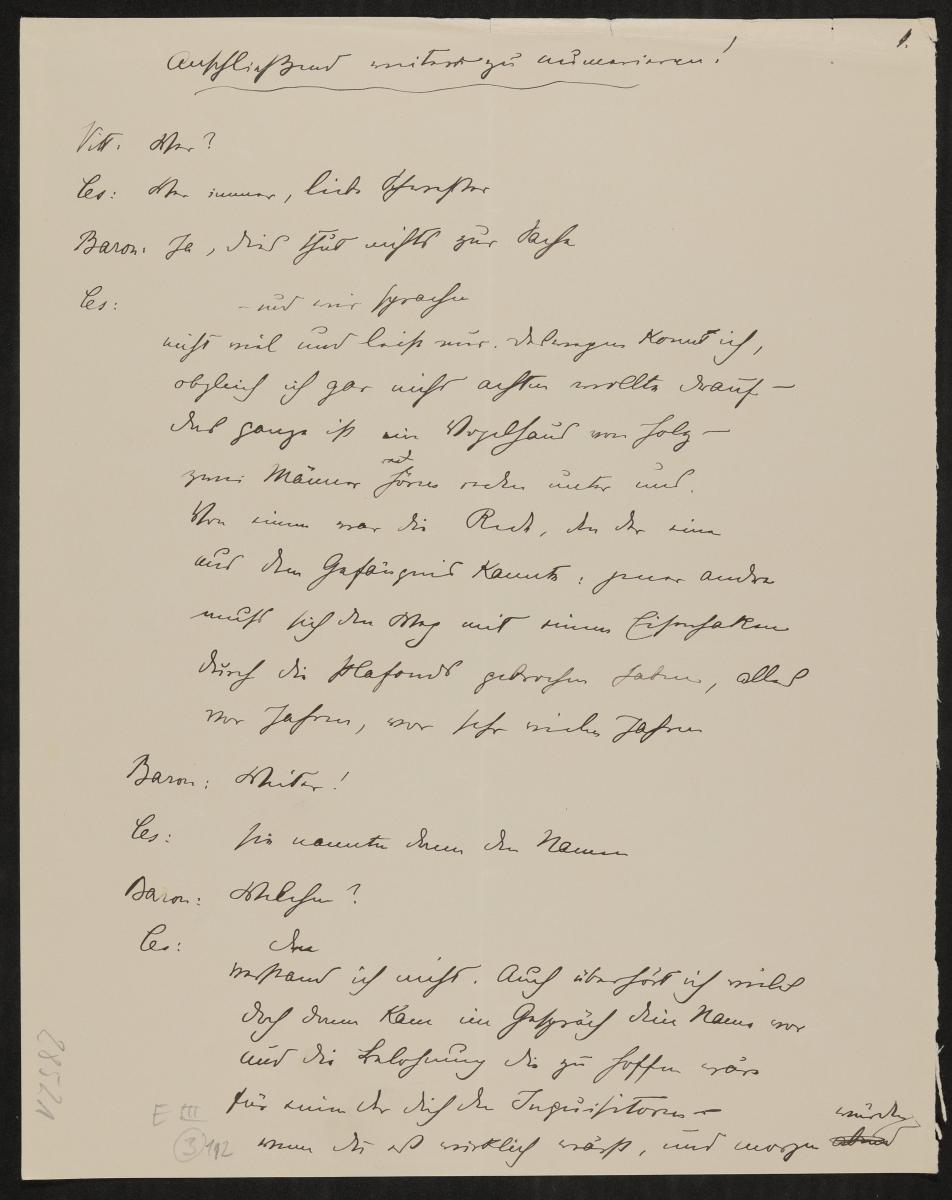 1.
Anschließend weiter zu numerieren!
Vitt. Wer?
Ces: Wer immer, liebe Schwester
Baron: Ja, dies thut nichts zur Sache
Ces: – und wir sprachen
nicht viel und leise nur. Deswegen konnt ich,
obgleich ich gar nicht achten wollte drauf –
das ganze ist ein Vogelhaus von Holz –
zwei Männer hören reden unter uns.
Von einem war die Rede, den der eine
aus dem Gefängnis kannte: jener andre
muss sich den Weg mit einem Eisenhaken
durch die Plafonds gebrochen haben, alles
vor Jahren, vor sehr vielen Jahren
Baron: Weiter!
Ces: sie nannten dann den Namen
Baron: Welchen?
Ces: den
verstand ich nicht. Auch überhört ich vieles
doch dann kam im Gespräch dein Name vor
und die Belohnung die zu hoffen wäre
für einen der dich den Inquisitoren –
wenn du es wirklich wärst, und morgen würden
28521
E III
3 192